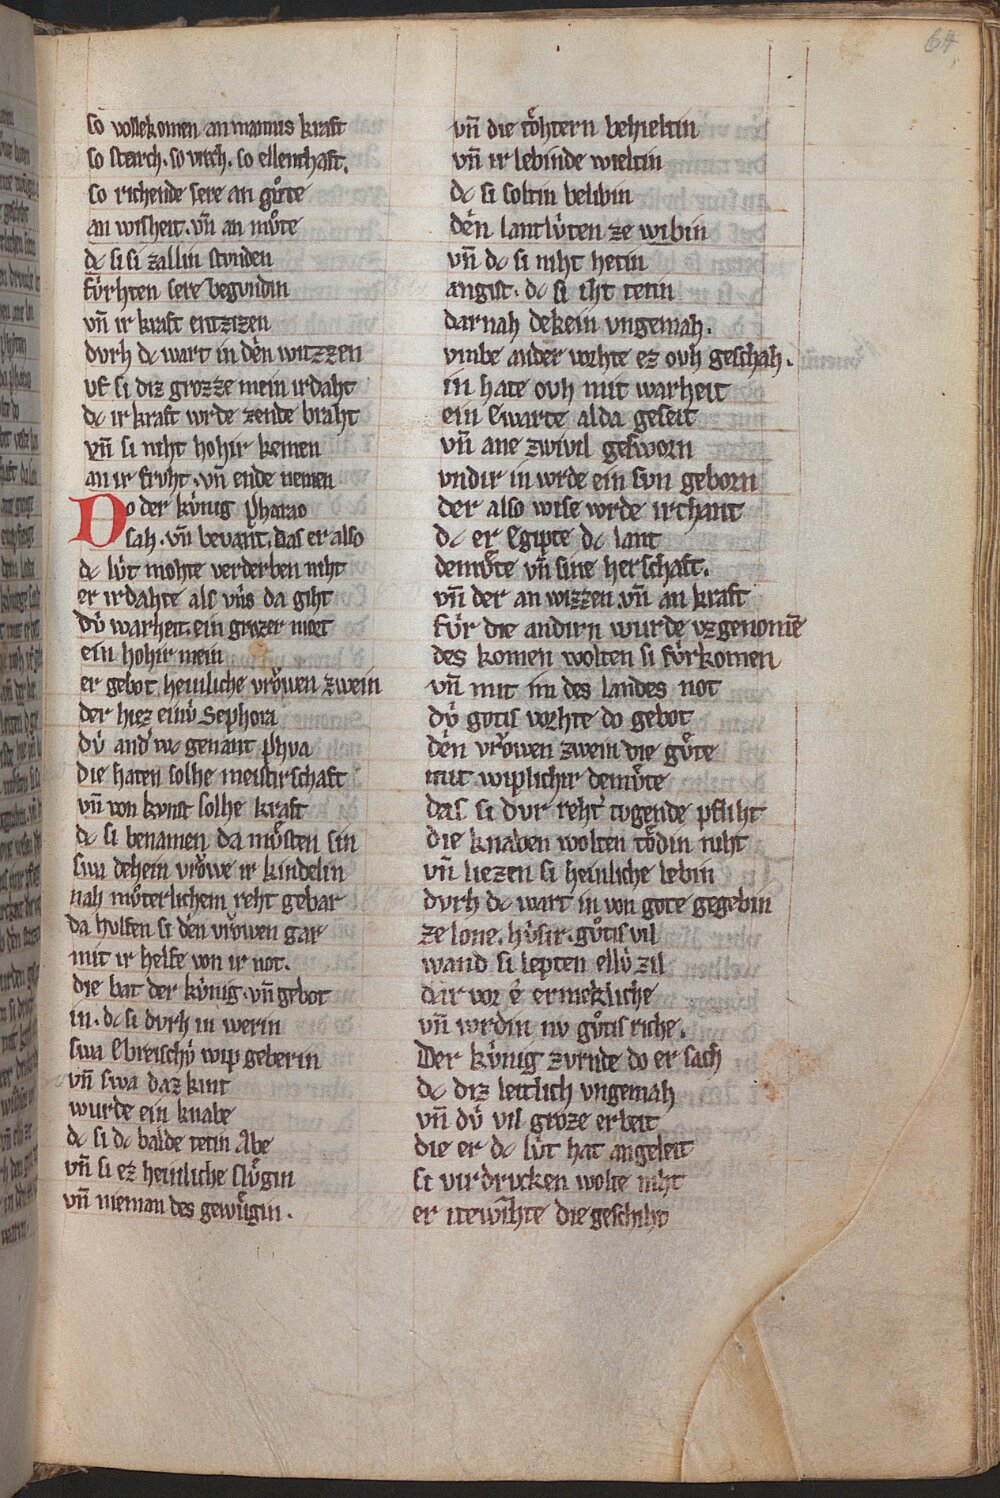 64
so vollekomen an mannis kraft
so starch. so vrech. so ellenthaft.
so richende sere an guͦte
an wisheit. vn̄ an muͦte
dc si si zallin stunden
fúrhten sere begundin
vn̄ ir kraft entzizen
dvrh dc wart in dén witzzen
vf si diz grozze mein irdaht
dc ir kraft wrde zende braht
vn̄ si niht hohir kemen
an ir frvht. vn̄ ende nemen
Do der kúnig Pharao
sah. vn̄ bevant. das er also
dc lút mohte verderben niht
er irdahte als vńs da giht
dú warheit. ein grozer mort
ein hohir mein
er gebot heinliche vroͮwen zwein
der hiez einú Sephora
dú and' wc genant Phva
die haten solhe meistirschaft
vn̄ von kvnst solhe kraft
dc si benamen da muͦsten sin
swa dehein vroͮwe ir kindelin
nah muͦterlichem reht gebar
da hulfen si dén vroͮwen gar
mit ir helfe von ir not.
die bat der kúnig. vn̄ gebot
in. dc si dvrh in werin
swa Ebreischú wip geberin
vn̄ swa daz kint
wurde ein knabe
dc si dc balde tetin Abe
vn̄ si ez heinliche sluͤgin
vn̄ nieman des gewuͤgin.
vn̄ die toͤhtern behieltin
vn̄ ir lebinde wieltin
dc si soltin belibin
dén lantlúten ze wibin
vn̄ dc si niht hetin
angist. dc si iht tetin
darnah dekein vngemah.
vmbe ander vorhte ez ovh geschah.
in hate ovh mit warheit
ein Ewarte alda geseit
vn̄ ane zwivil gesworn
vndir in wrde ein svn geborn
der also wise wrde irchant
dc er Egipte dc lant
demuͤte vn̄ sine herschaft.
vn̄ der an wizzen vn̄ an kraft
fúr die andirn wurde vzgenomē
des komen wolten si fúrkomen
vn̄ mit im des landes not
dú gotis vorhte do gebot
dén vroͮwen zwein die guͦte
mit wiplichir demuͤte
das si dvr reht tvgende pfliht
die knaben wolten toͤdin niht
vn̄ liezen si heinliche lebin
dvrh dc wart in von gote gegebin
ze lone. húsir. guͦtis vil
wand si lepten ellú zil
dar vor é ermekliche
vn̄ wrdin nv guͦtis riche.
Der kúnig zvrnde do er sach
dc diz leitlich vngemah
vn̄ dú vil groze erbeit
die er dc lút hat angeleit
si virdrucken wolte niht
er itewihte die geschiht